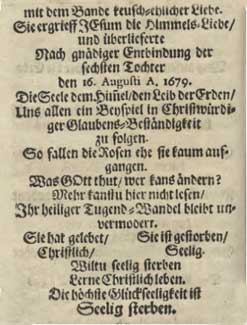 mit dem Bande keusch-ehlicher Liebe.
Sie ergrieff JEsum die Himmels-Liebe/
und überlieferte
Nach gnädiger Entbindung der
sechsten Tochter
den 16. Augusti A. 1679.
Die Seele dem Him̃el/den Leib der Erden/
Uns allen ein Beyspiel in Christwürdi-
ger Glaubens-Beständigkeit
zu folgen.
So fallen die Rosen ehe sie kaum auf-
gangen.
Was GOtt thut/ wer kans ändern?
Mehr kanstu hier nicht lesen/
Ihr heiliger Tugend-Wandel bleibt un-
vermodert.
Sie hat gelebet/ Sie ist gestorben/
Christlich/ Seelig.
Wiltu seelig sterben
Lerne Christlich leben.
Die höchste Glückseeligkeit ist
Seelig sterben.